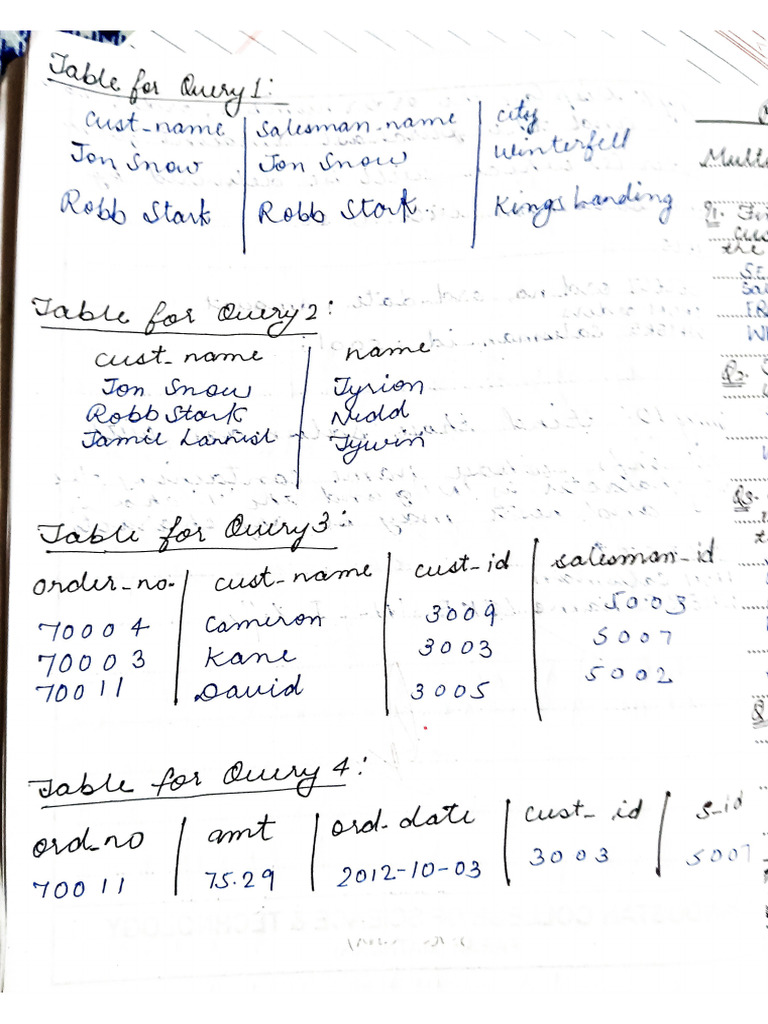 Table for Query 1:
cust_name | salesman_name | city
Jon Snow | Jon Snow | Winterfell
Robb Stark | Robb Stark. | Kings Landing
Table for Query 2:
cust_name | name
Jon Snow | Tyrion
Robb Stark | Nedd
Jamie Lannist | Tywin
Table for Query 3:
order_no. | cust_name | cust_id | salesman_id
70004 | Cameron | 3009 | 5003
70003 | Kane | 3003 | 5007
70011 | David | 3005 | 5002
Table for Query 4:
ord_no | amt | ord_date | cust_id | s_id
70011 | 75.29 | 2012-10-03 | 3003 | 5007
Q1.
the
Q2.
Q3.